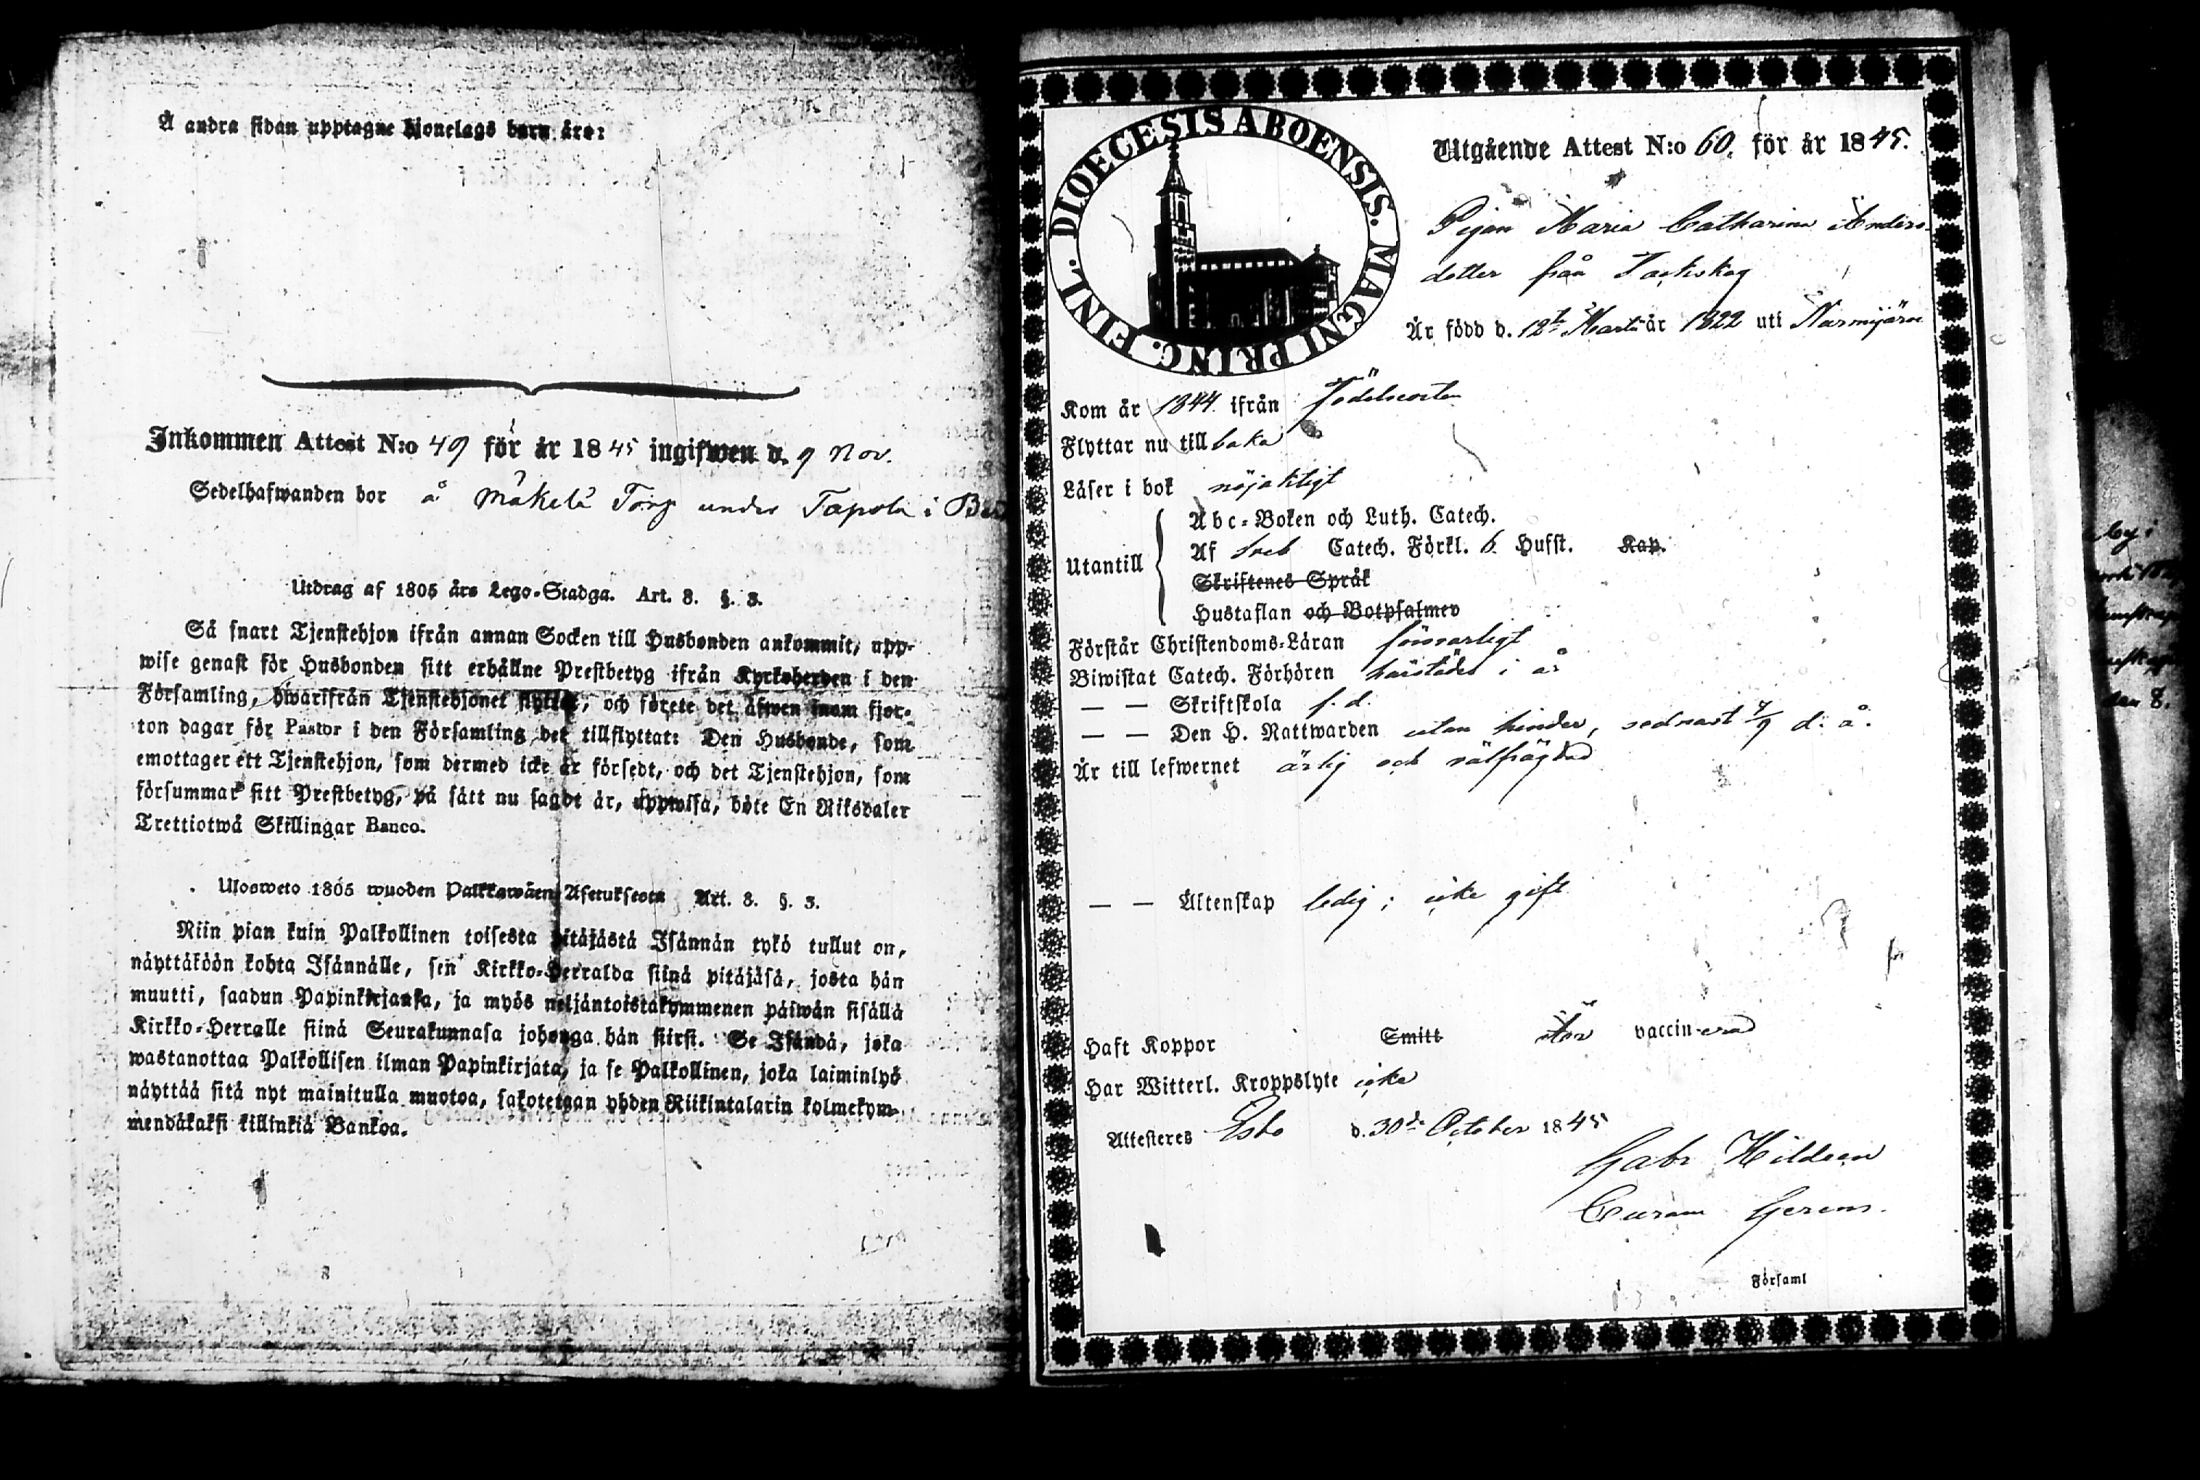 Å andra sidan upptagne Hjonelags barn äro:
Inkommen Attest N:o 49 för år 1845 ingifwen d. 9 Nov.
Sedelhafwanden bor å Mäkelä Torp under Tapola i
Utdrag af 1805 års Lego-Stadga. Art. 8. §. 3.
Så snart Tjenstehjon ifrån annan Socken till Husbonden ankommit, upp-
wise genast för Husbonden sitt erhållne Prestbetyg ifrån Kyrkoherden i den
Församling, hwarifrån Tjenstehjonet flyttat, och förete det äfwen inom fjor-
ton dagar för Pastor i den Församling det tillflyttat: Den Husbonde, som
emottager ett Tjenstehjon, som dermed icke är försedt, och det Tjenstehjon, som
försummar sitt Prestbetyg, på sätt nu sagdt är, uppwisa, böte En Riksdaler
Trettiotwå Skillingar Banco.
Ulosweto 1805 wuoden Palkkawäen Asetuksesta Art. 8. §. 3.
Niin pian kuin Palkollinen toisesta pitäjästä Isännän tykö tullut on,
näyttäköön kohta Isännälle, sen Kirkko-Herralda siinä pitäjäsä, josta hän
muutti, saadun Papinkirjansa, ja myös neljäntoistakymmenen päiwän sisällä
Kirkko-Herralle siinä Seurakunnasa johonga hän siirsi. Se Isändä, joka
wastanottaa Palkollisen ilman Papinkirjata, ja se Palkollinen, joka laiminlyö
näyttää sitä nyt mainitulla muotoa, sakotetaan yhden Riikintalarin kolmekym-
mendäkaksi killinkiä Bankoa.
DIOECESIS ABOENSIS. MAGNI PRINC. FINL.
Utgående Attest N:o 60. för år 1845.
Pigan Maria Catharina Anders
dotter från Tackskog
Är född d. 12te Martii år 1822 uti Nurmijärvi
Kom år 1844 ifrån Födelseorten
Flyttar nu tillbaka
Läser i bok nöjaktigt
Abc-Boken och Luth. Catech.
Utantill Af Sveb Catech. Förkl. 6 Hufst. Kap.
Skriftenes Språk
Hustaflan och Botpsalmer
Förstår Christendoms-Läran försvarligt
Biwistat Catech. Förhören härstädes i år
— — Skriftskola f. d.
— — Den H. Nattwarden utan hinder, sednast 7/9 d: å:
Är till lefwernet ärlig och välfrägdad
— — Äktenskap ledig; icke gift
Haft Koppor Smitt Är vaccinerad
Har Witterl. Kroppslyte icke
Attesteres Esbo d. 30de October 1845
Gabr Hildeen
Curam Gerens.
Församl